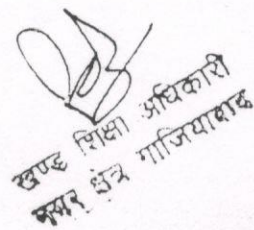 खण्ड शिक्षा अधिकारी
नगर क्षेत्र गाजियाबाद